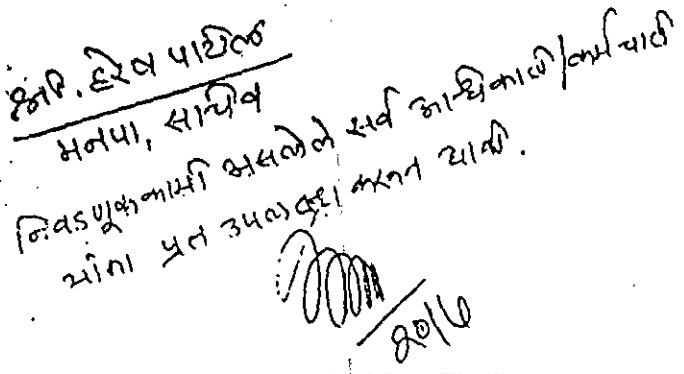 श्री. हरेष पाटील
मनपा, सचिव
निवडणूककामी असलेले सर्व अधिकारी/कर्मचारी
यांना प्रत उपलब्ध करून द्यावी.
२०/७